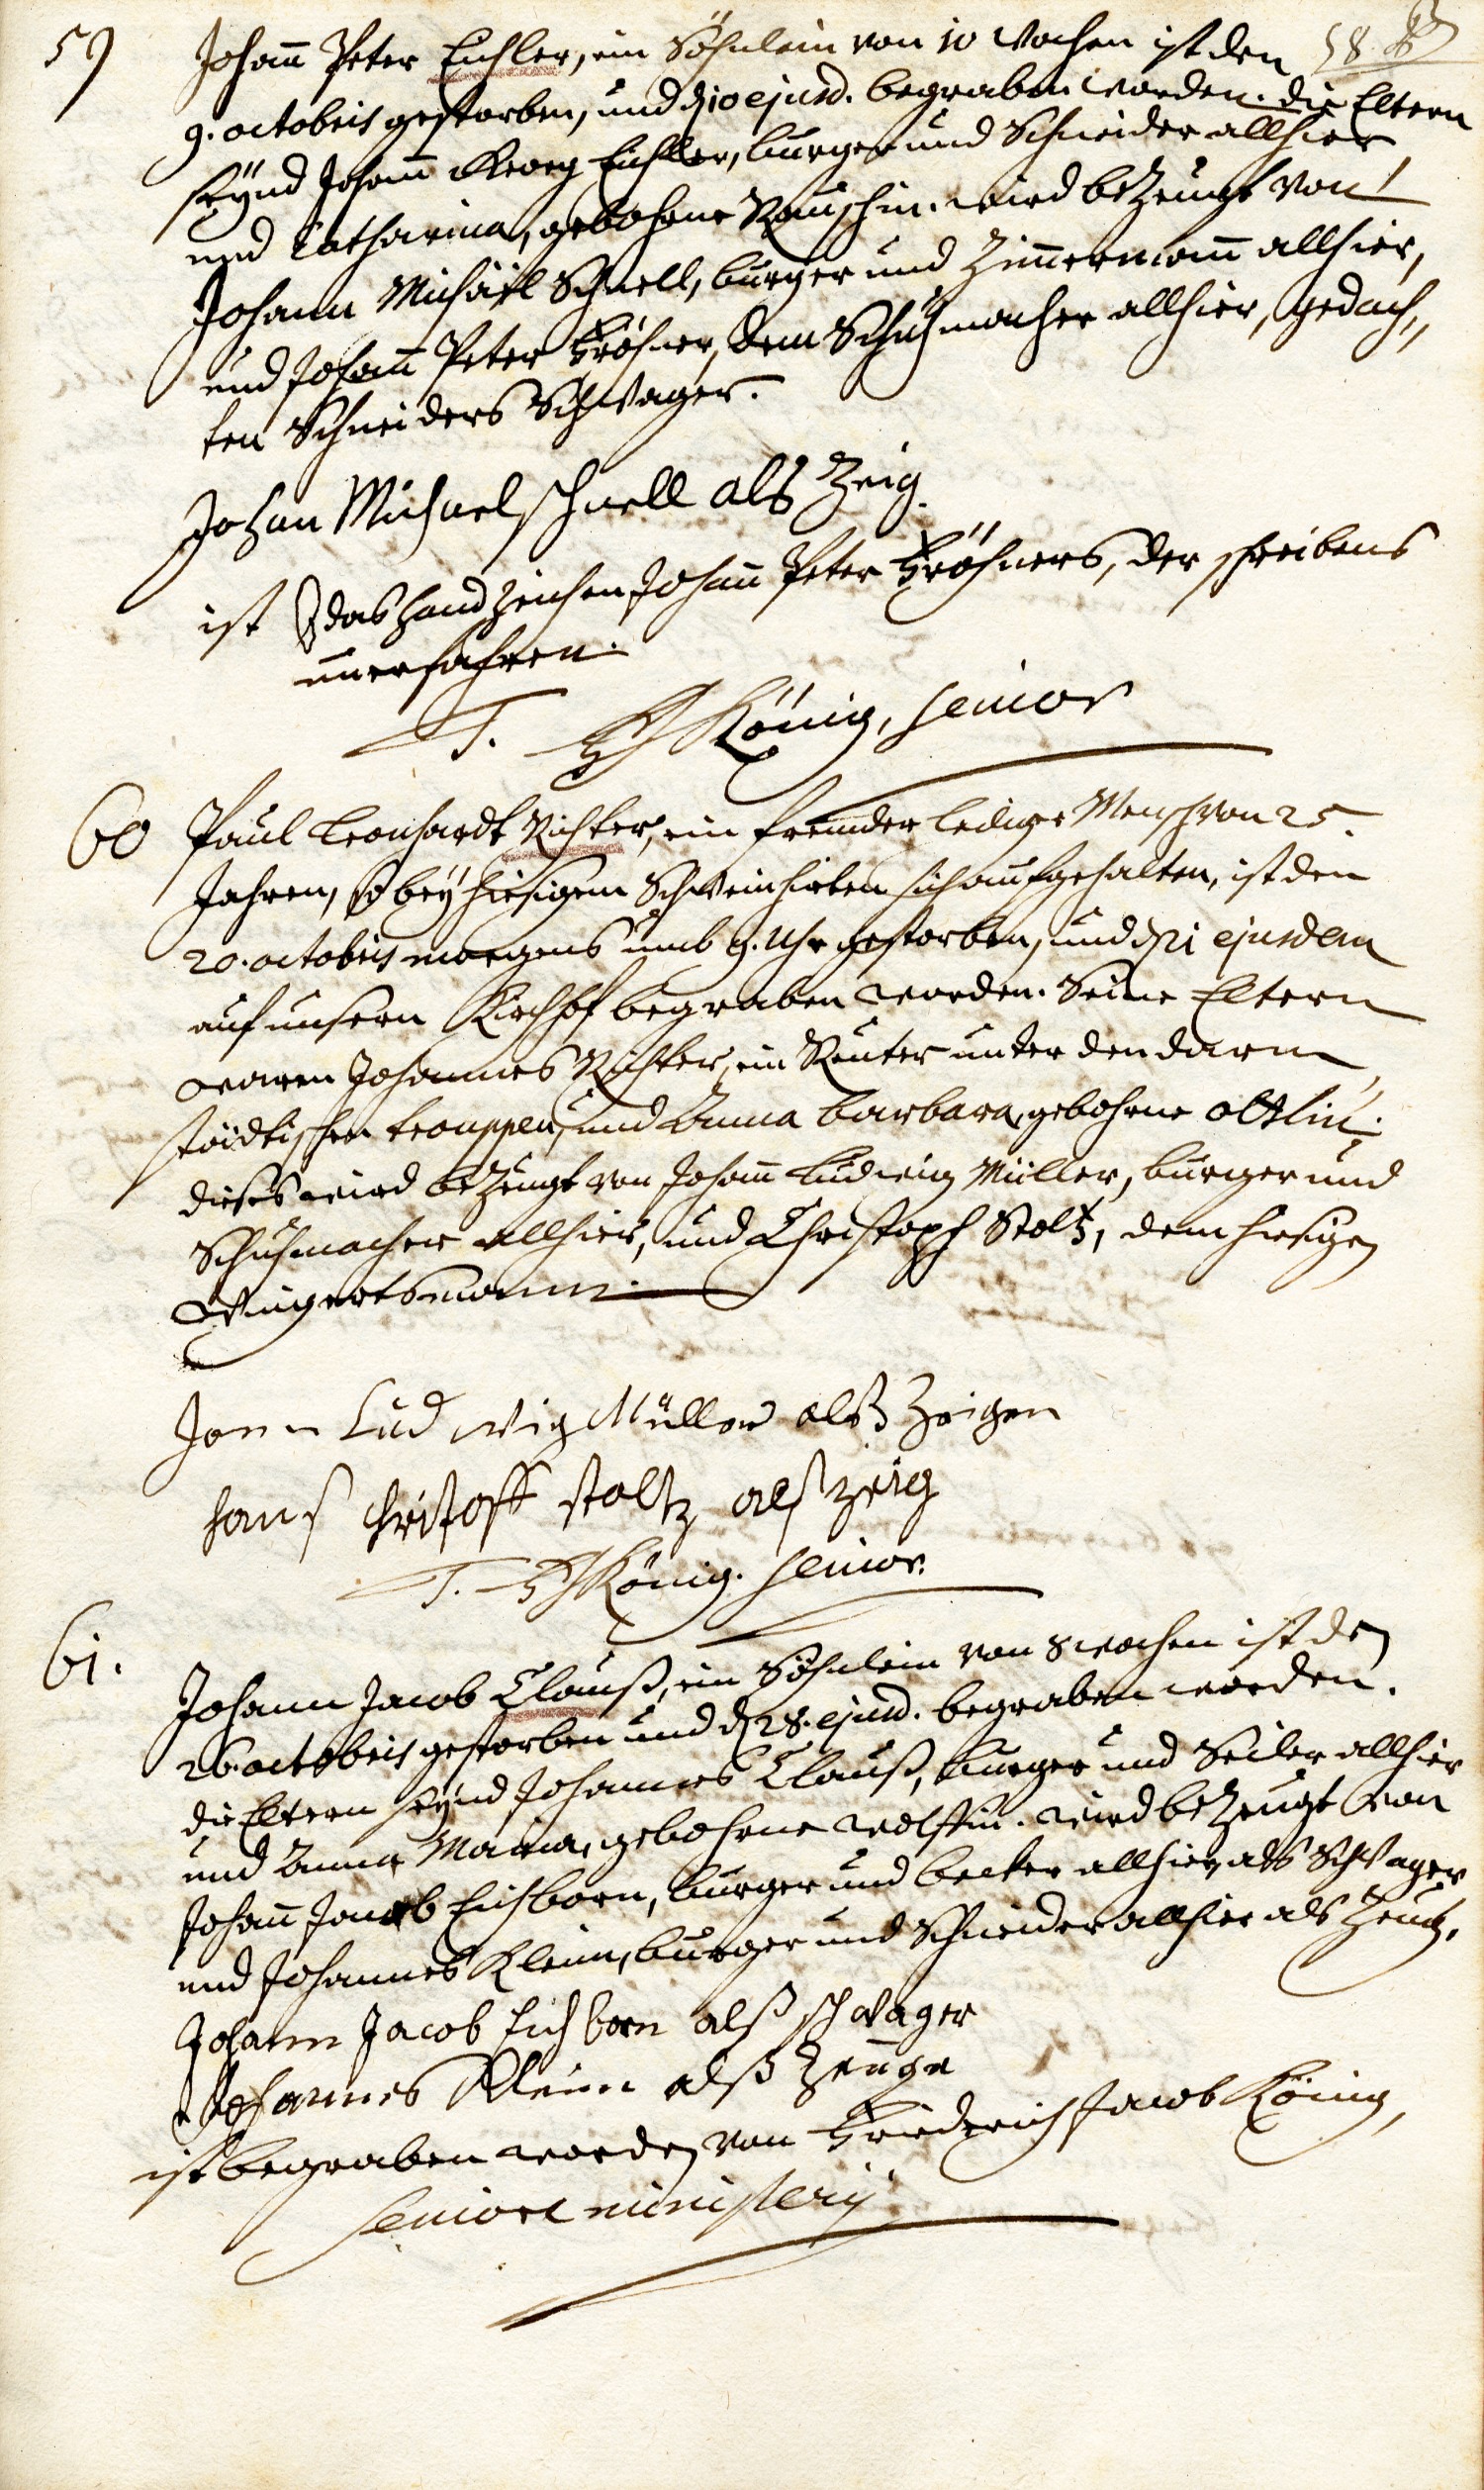 59 Johañ Peter Eichler, ein Söhnlein von 10 Wochen ist den
58.
9. octobris gestorben, und d. 10 ejusd. begraben worden. die Eltern
seÿnd Johañ Georg Eichler, burger und Schneider allhier,
und Catharina, gebohrne Rauschin. wird bezeugt von
Johann Michäel Schnell, burger und Zim̃ermañ allhier,
und Johañ Peter Fröhner, dem Schuhmacher allhier, gedach„
ten Schneiders Schwager.
Johan Michael schnell als Zeig.
ist das handzeichen Johañ Peter Fröhners, der schreibens
unerfahren.
T. FJ König, senior
60 Paul Leonhardt Richter, ein fremder lediger Mensch von 25.
Jahren, so beÿ hiesigem Schweinhirten sich aufgehalten, ist den
20. octobris morgens umb 9. Uhr gestorben, und d. 21 ejusdem
auf unsern Kirchhof begraben worden. Seine Eltern
waren Johannes Richter, ein Reuter unter den darm„
städtischen trouppen, und Anna barbara, gebohrne
dieses wird bezeugt von Johañ Ludwig Müller, burger und
Schuhmacher allhier, und Christoph Stoltz, dem hiesigen
Wingertsmann.
Johan Lud wig Müller alß Zeigen
hans christoff stoltz alß zeig
T. FJ König. senior.
61. Johann Jacob Clauß, ein Söhnlein von 8 wochen ist den
26. octobris gestorben und d. 28. ejusd. begraben worden.
die Eltern seÿnd Johannes Clauß, burger und Seiler allhier
und Anna Maria, gebohrne wolffin. wird bezeugt von
Johañ Jacob Eichborn, burger und becker allhier, als Schwager
und Johannes Klein, burger und Schneider allhier als Zeug.
Johann Jacob Eichborn alß schwager
Johannes Klein alß Zeuge
ist begraben worden von Friederich Jacob König,
seniore ministerij